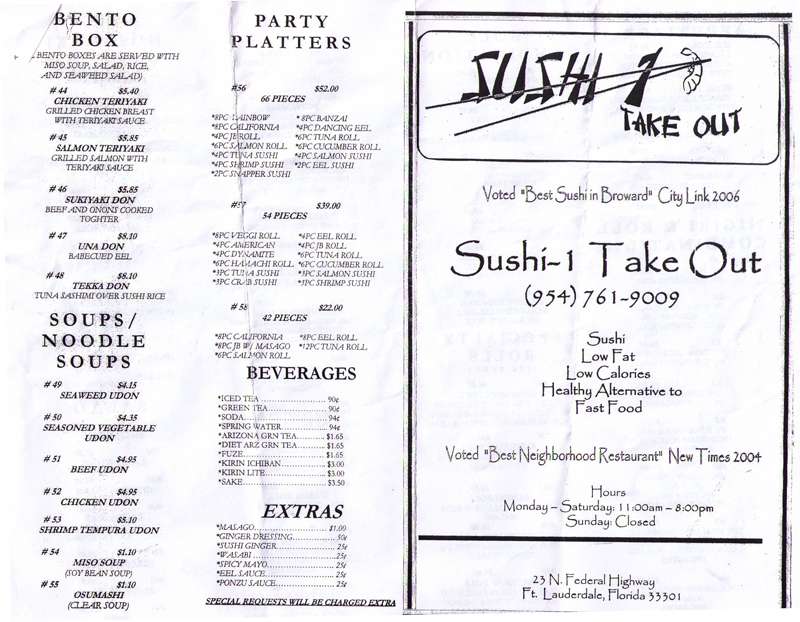 BENTO
BOX
BENTO BOXES ARE SERVED WITH
MISO SOUP, SALAD, RICE,
AND SEAWEED SALAD)
# 44 $5.40
CHICKEN TERIYAKI
GRILLED CHICKEN BREAST
WITH TERIYAKI SAUCE
# 45 $5.85
SALMON TERIYAKI
GRILLED SALMON WITH
TERIYAKI SAUCE
# 46 $5.85
SUKIYAKI DON
BEEF AND ONONS COOKED
TOGHTER
# 47 $8.10
UNA DON
BABECUED EEL
# 48 $8.10
TEKKA DON
TUNA SASHIMI OVER SUSHI RICE
SOUPS/
NOODLE
SOUPS
# 49 $4.15
SEAWEED UDON
# 50 $4.35
SEASONED VEGETABLE
UDON
# 51 $4.95
BEEF UDON
# 52 $4.95
CHICKEN UDON
# 53 $5.10
SHRIMP TEMPURA UDON
# 54 $1.10
MISO SOUP
(SOY BEAN SOUP)
# 55 $1.10
OSUMASHI
(CLEAR SOUP)
PARTY
PLATTERS
#56 $52.00
66 PIECES
*8PC RAINBOW * 8PC BANZAI
*8PC CALIFORNIA *4PC DANCING EEL
*4PC JB ROLL *6PC TUNA ROLL
*6PC SALMON ROLL *6PC CUCUMBER ROLL
*4PC TUNA SUSHI *4PC SALMON SUSHI
*4PC SHRIMP SUSHI *2PC EEL SUSHI
*2PC SNAPPER SUSHI
#57 $39.00
54 PIECES
*8PC VEGGI ROLL *4PC EEL ROLL
*4PC AMERICAN *4PC JB ROLL
*4PC DYNAMITE *6PC TUNA ROLL
*6PC HAMACHI ROLL *6PC CUCUMBER ROLL
*3PC TUNA SUSHI *3PC SALMON SUSHI
*3PC CRAB SUSHI *3PC SHRIMP SUSHI
# 58 $22.00
42 PIECES
*8PC CALIFORNIA *8PC EEL ROLL
*8PC JB W/ MASAGO *12PC TUNA ROLL
*6PC SALMON ROLL
BEVERAGES
*ICED TEA 90¢
*GREEN TEA 90¢
*SODA 94¢
*SPRING WATER 94¢
*ARIZONA GRN TEA $1.65
*DIET ARZ GRN TEA $1.65
*FUZE $1.65
*KIRIN ICHIBAN $3.00
*KIRIN LITE $3.00
*SAKE $3.50
EXTRAS
*MASAGO $1.00
*GINGER DRESSING 50¢
*SUSHI GINGER 25¢
*WASABI 25¢
*SPICY MAYO 25¢
*EEL SAUCE 25¢
*PONZU SAUCE 25¢
SPECIAL REQUESTS WILL BE CHARGED EXTRA
SUSHI 1
TAKE OUT
Voted "Best Sushi in Broward" City Link 2006
Sushi-1 Take Out
(954) 761-9009
Sushi
Low Fat
Low Calories
Healthy Alternative to
Fast Food
Voted "Best Neighborhood Restaurant" New Times 2004
Hours
Monday – Saturday: 11:00am – 8:00pm
Sunday: Closed
23 N. Federal Highway
Ft. Lauderdale, Florida 33301